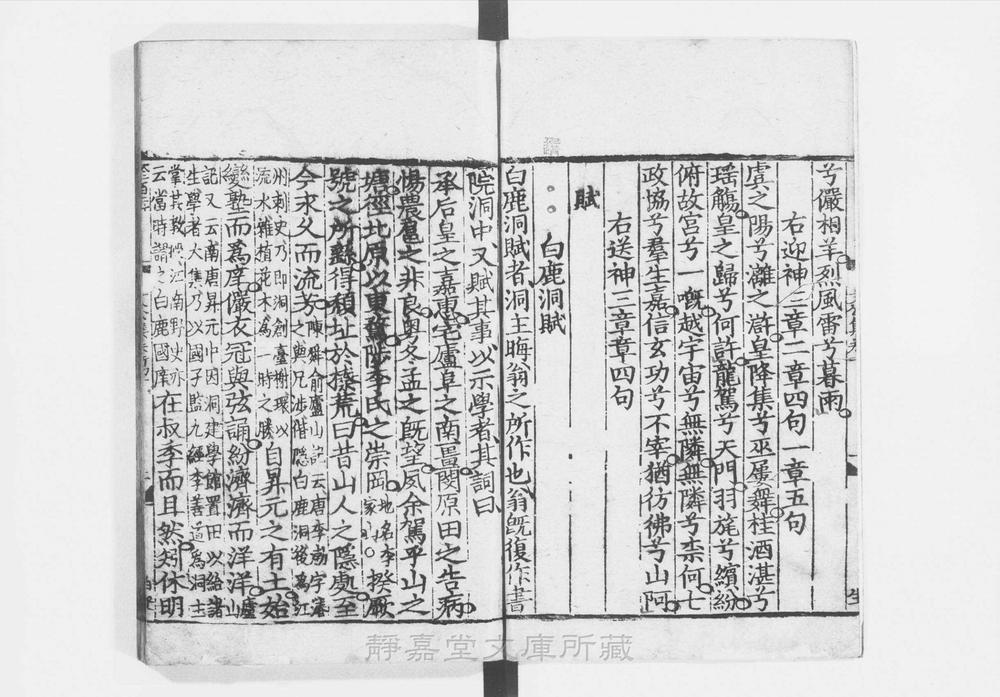 兮儼相羊烈風雷兮暮雨
右迎神三章二章四句一章五句
虞之陽兮灕之滸皇降集兮巫屢舞桂酒湛兮
瑤觴皇之歸兮何許龍駕兮天門羽旄兮繽紛
俯故宮兮一慨越宇宙兮無隣無隣兮柰何七
政協兮羣生嘉信玄功兮不宰猶彷彿兮山阿
右送神三章章四句
賦
白鹿洞賦
白鹿洞賦者洞主晦翁之所作也翁旣復作書
院洞中又賦其事以示學者其詞曰
承后皇之嘉惠宅廬阜之南畺閔原田之告病
惕農扈之非良粤冬孟之旣望夙余駕乎山之
塘徑北原以東騖陟李氏之崇岡地名李家山揆厥
號之所繇得頽址於榛荒曰昔山人之隱處至
今永久而流芳陳舜俞廬山記云唐李渤字濬之與兄涉偕隱白鹿洞後爲江
州刺史乃卽洞創臺榭環以流水雜植花木爲一時之勝自昇元之有土始
變塾而爲庠儼衣冠與弦誦紛濟濟而洋洋廬山
記又云南唐昇元中因洞建學館置田以給諸生學者大集乃以國子監九經李善道爲洞主
掌其敎江南野史亦云當時謂之白鹿國庠在叔季而且然矧休明
靜嘉堂文庫所藏